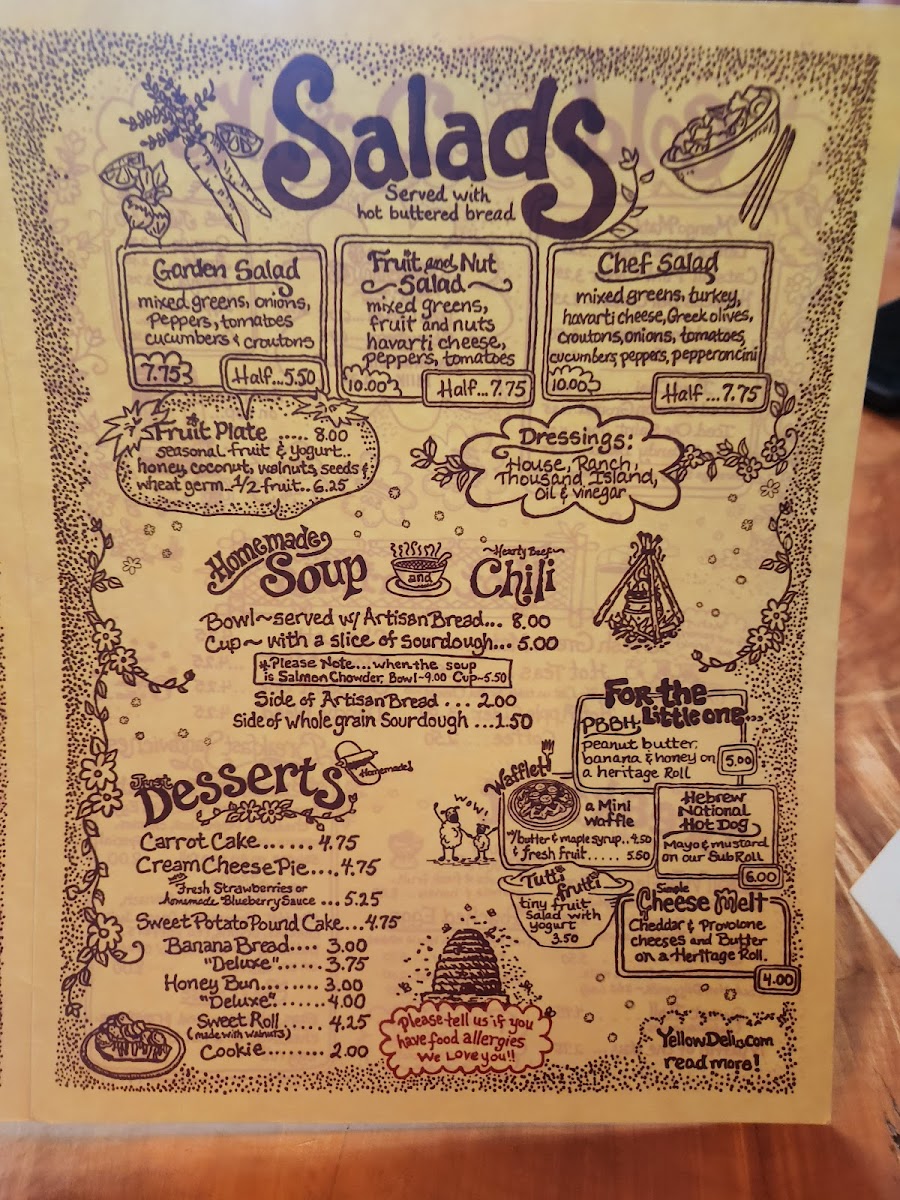 Salads
Served with
hot buttered bread
Garden Salad
mixed greens, onions,
Peppers, tomatoes
cucumbers & croutons
7.75
Half...5.50
Fruit and Nut
Salad
mixed greens,
fruit and nuts
havarti cheese,
peppers, tomatoes
10.00
Half...7.75
Chef Salad
mixed greens, turkey,
havarti cheese, Greek olives,
croutons, onions, tomatoes,
cucumbers, peppers, pepperoncini
10.00
Half...7.75
Fruit Plate ..... 8.00
seasonal fruit & yogurt..
honey, coconut, walnuts, seeds &
wheat germ...1/2 fruit.. 6.25
Dressings:
House, Ranch,
Thousand Island,
Oil & vinegar
Homemade
Soup
and
~Hearty Beef~
Chili
Bowl~served w/ Artisan Bread... 8.00
Cup~ with a slice of sourdough... 5.00
*Please Note...when the soup
is Salmon Chowder, Bowl~9.00 Cup~5.50
Side of Artisan Bread ... 2.00
Side of whole grain Sourdough ...1.50
For the
Little one...
PBBH
peanut butter,
banana & honey on
a heritage Roll
5.00
Wafflet!
a Mini
Waffle
w/butter & maple syrup..4.50
& fresh fruit..... 5.50
Wow!
Hebrew
National
Hot Dog
Mayo & mustard
on our Sub Roll
6.00
Tutti
frutti
tiny fruit
salad with
yogurt
3.50
Simple
Cheese Melt
Cheddar & Provolone
cheeses and Butter
on a Heritage Roll.
4.00
Just
Desserts
Homemade!
Carrot Cake....... 4.75
Cream Cheese Pie....4.75
with Fresh Strawberries or
homemade Blueberry Sauce ...5.25
Sweet Potato Pound Cake...4.75
Banana Bread.... 3.00
"Deluxe"...... 3.75
Honey Bun....... 3.00
"Deluxe"....... 4.00
Sweet Roll .... 4.25
(made with walnuts)
Cookie........ 2.00
Please tell us if you
have food allergies
We Love you!!
YellowDeli.com
read more!